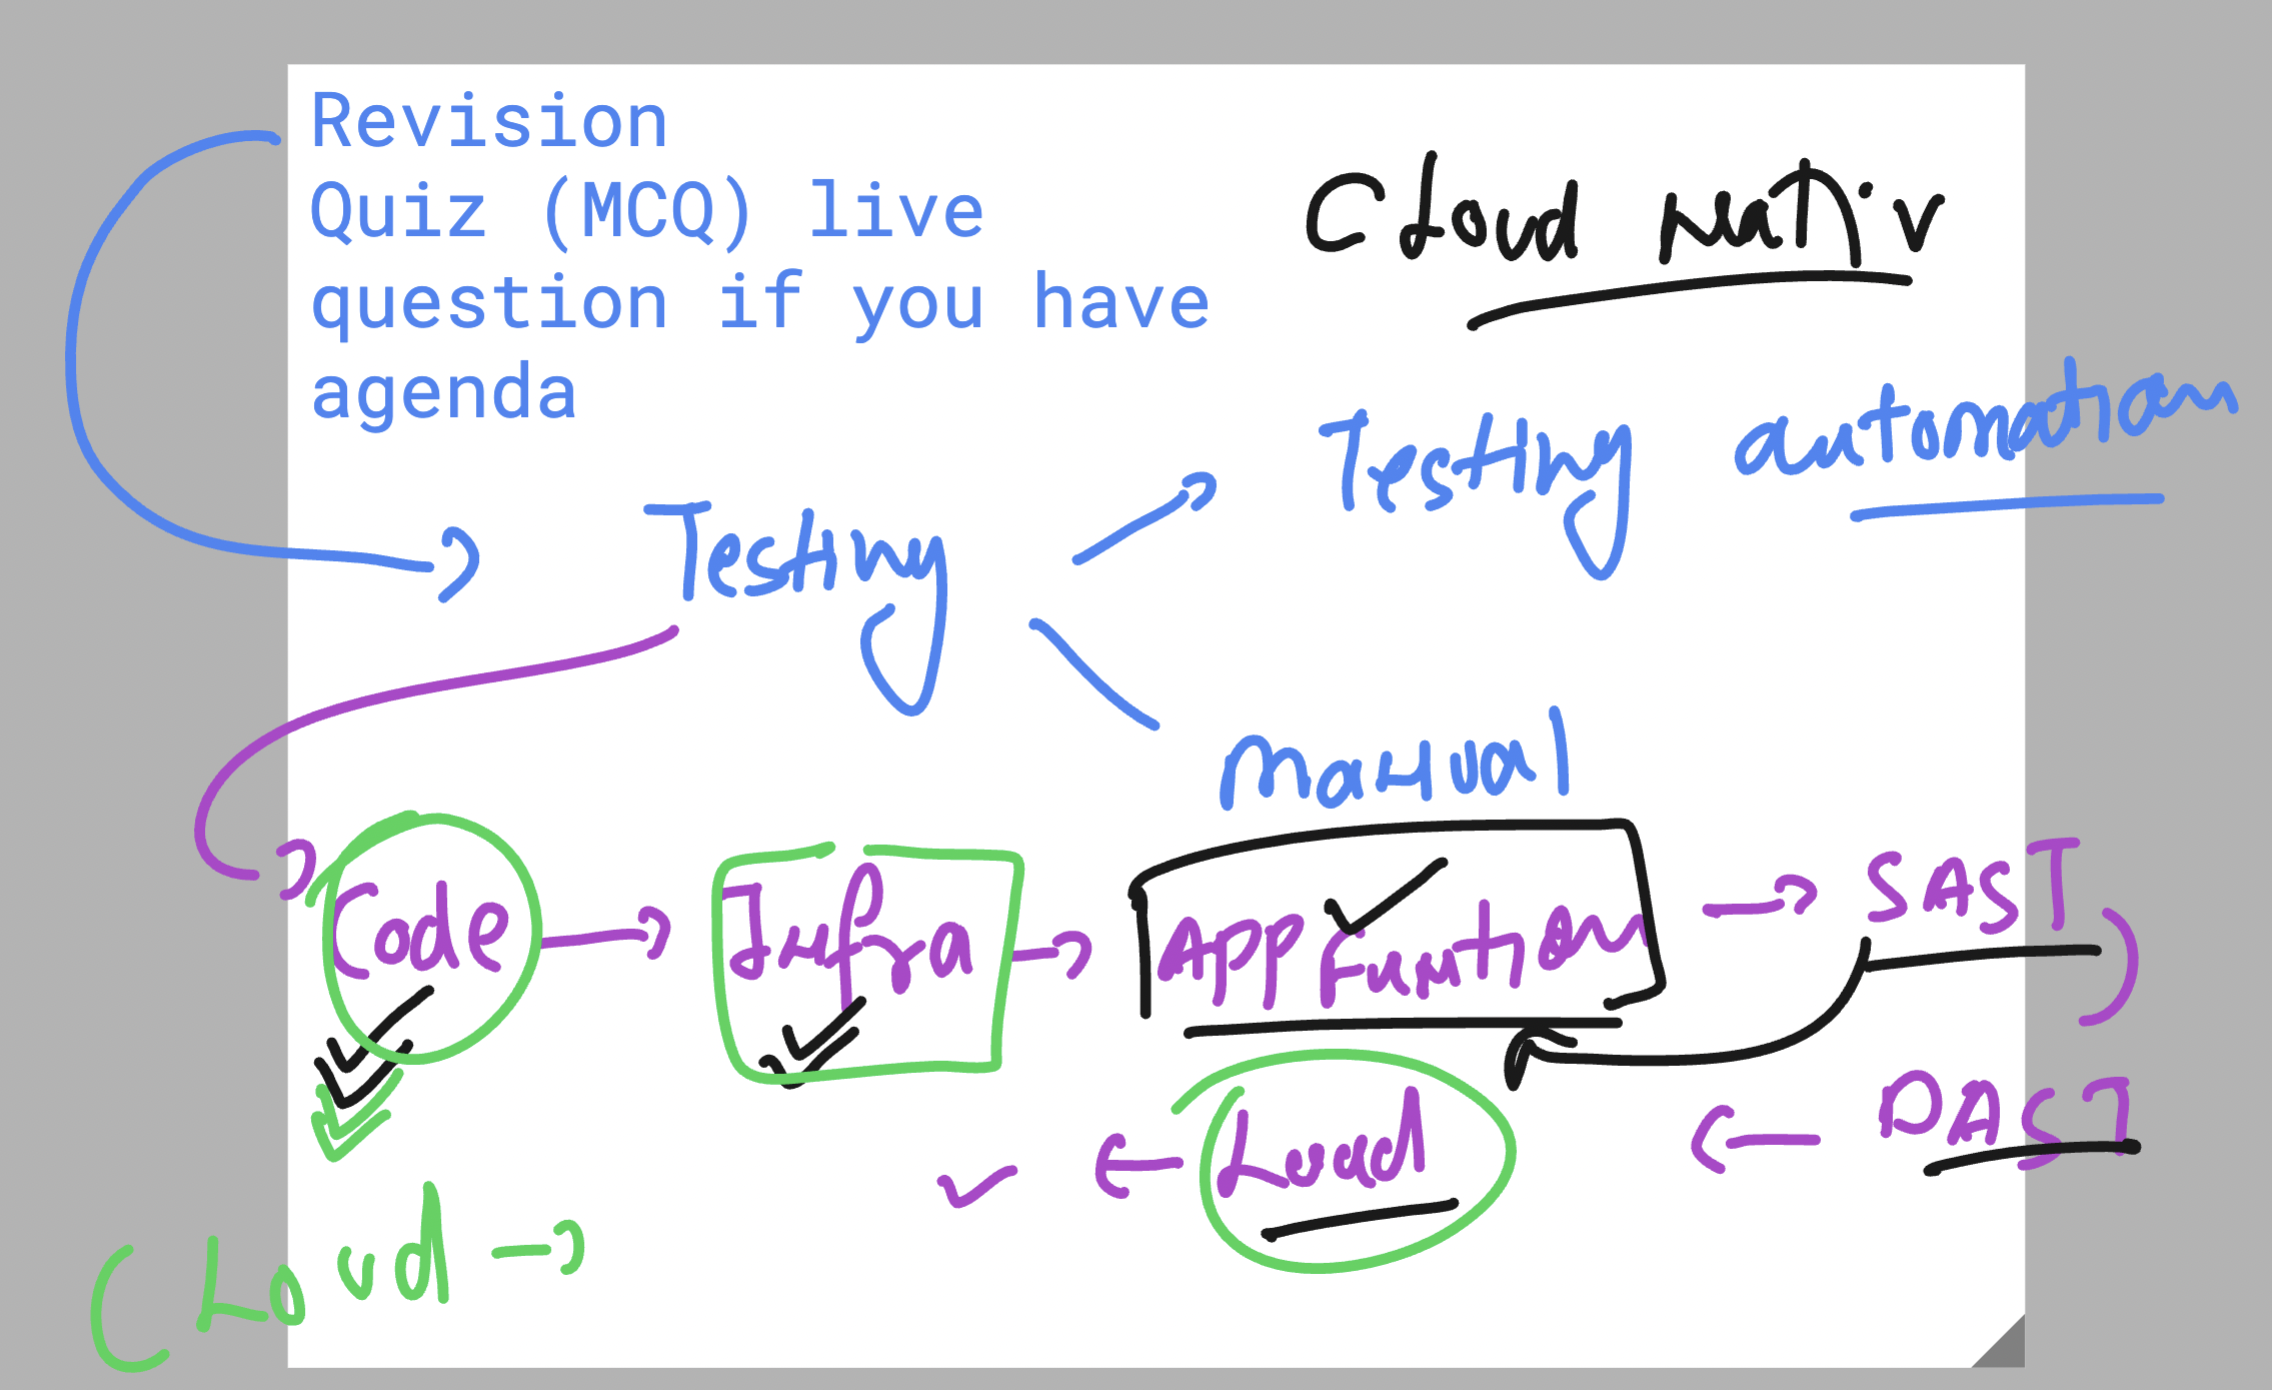 Revision
Quiz (MCQ) live
question if you have
agenda
Cloud Nativ
Testing automation
Testing
Manual
Code
Infra
App Function
SAST
DAST
Load
Cloud